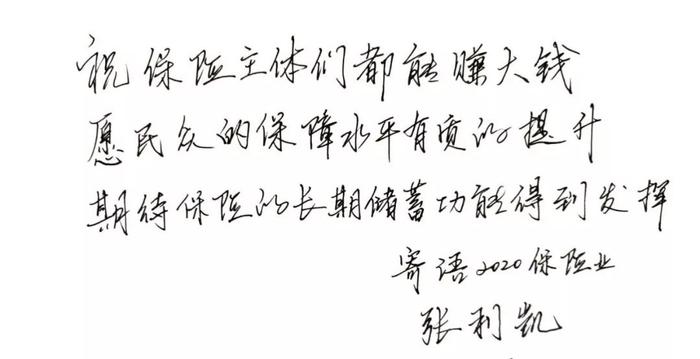 祝保险主体们都能赚大钱
愿民众的保障水平有质的提升
期待保险的长期储蓄功能得到发挥
寄语2020保险业
张利凯